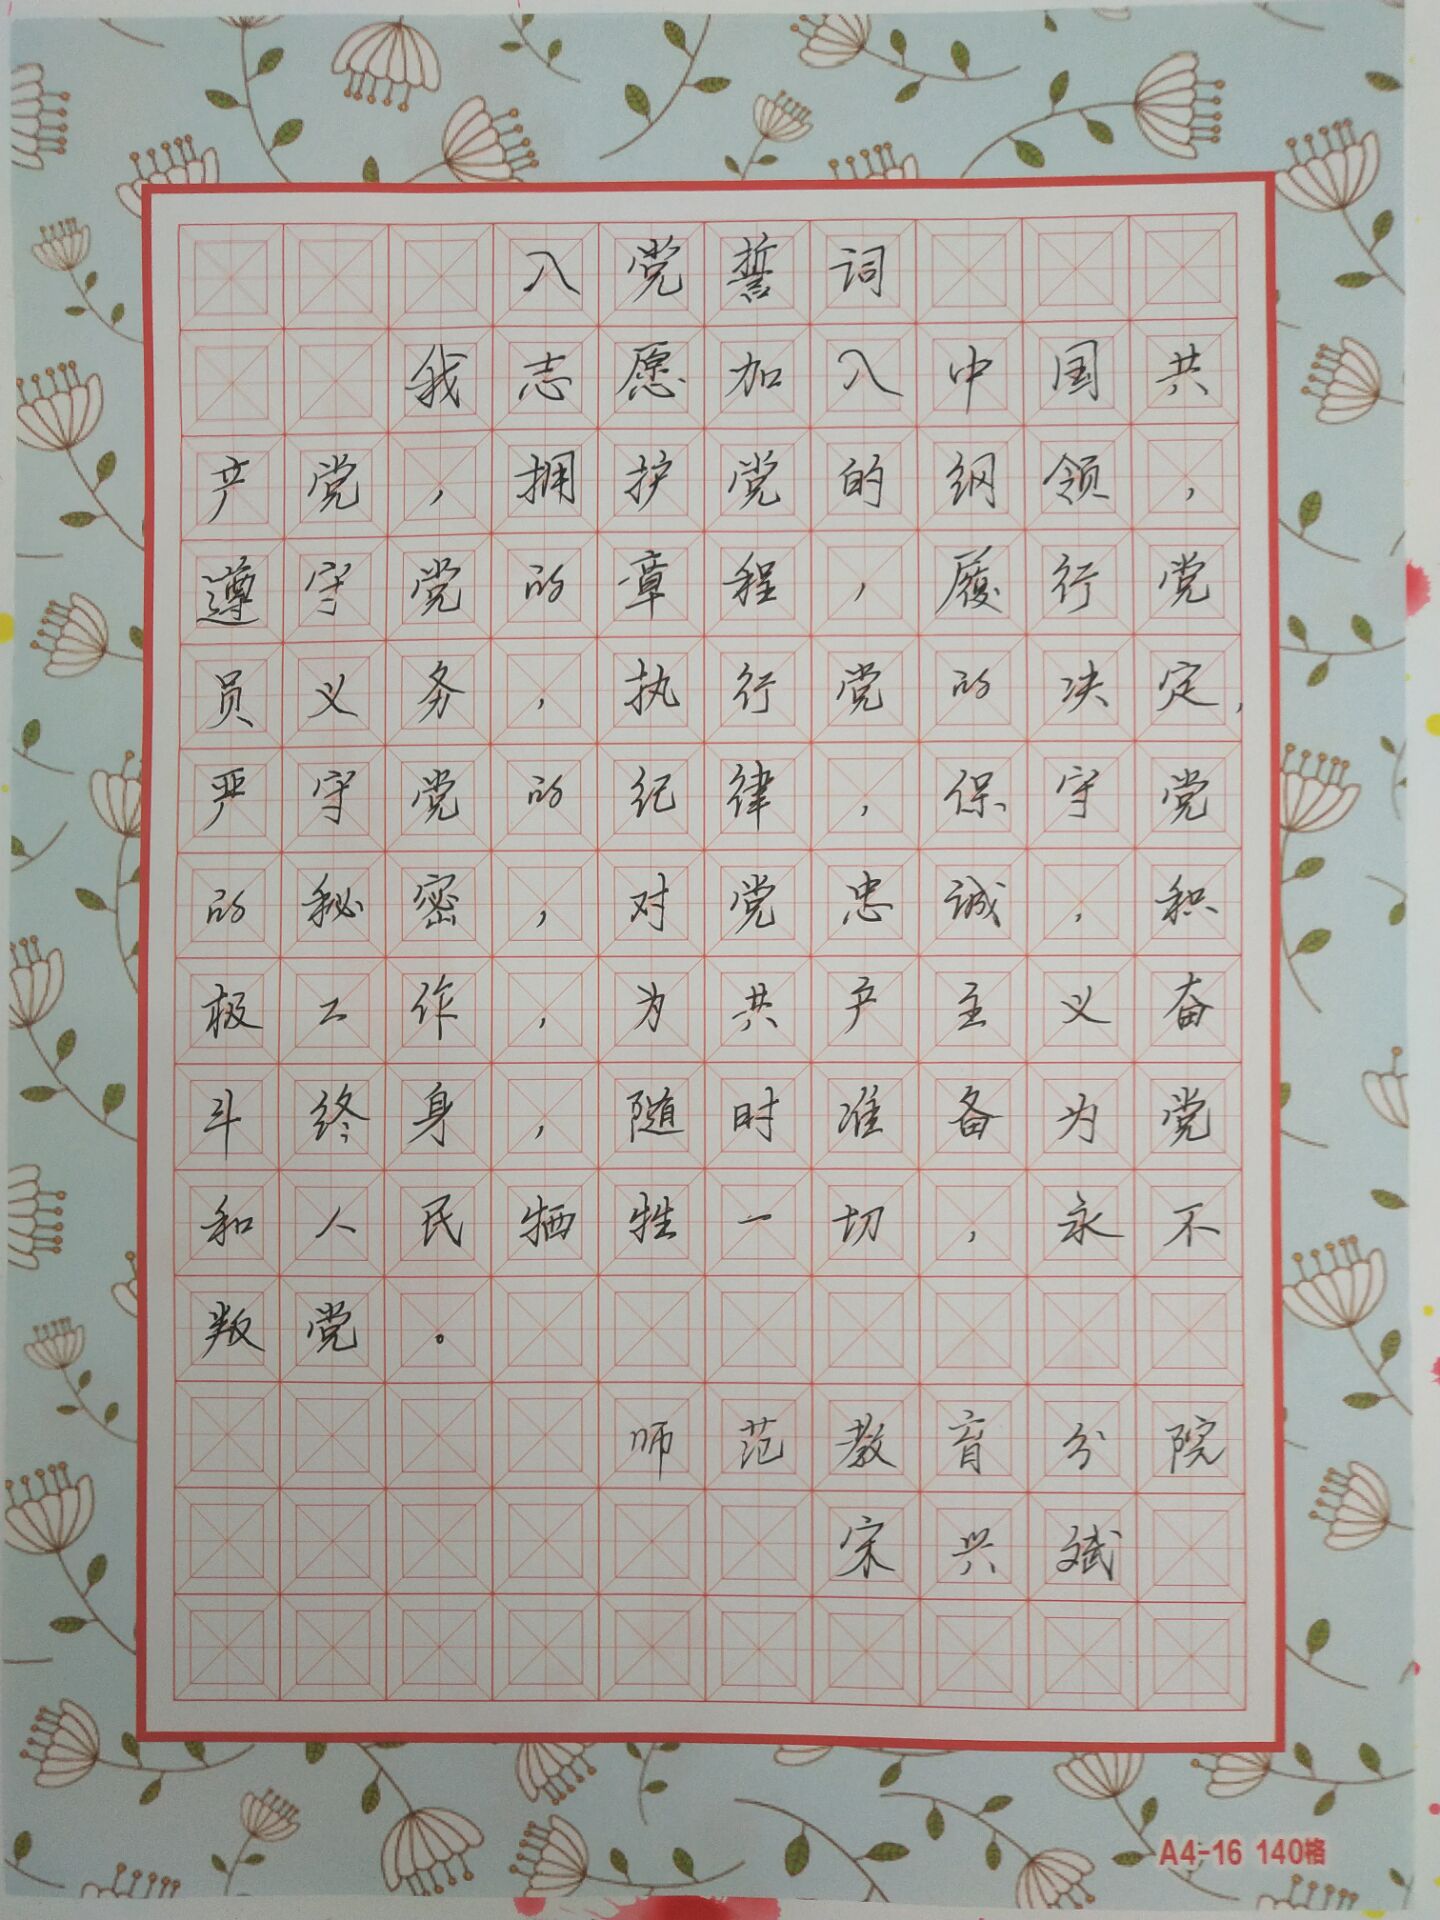 入党誓词
我志愿加入中国共
产党，拥护党的纲领，
遵守党的章程，履行党
员义务，执行党的决定，
严守党的纪律，保守党
的秘密，对党忠诚，积
极工作，为共产主义奋
斗终身，随时准备为党
和人民牺牲一切，永不
叛党。
师范教育分院
宋兴斌
A4-16 140格